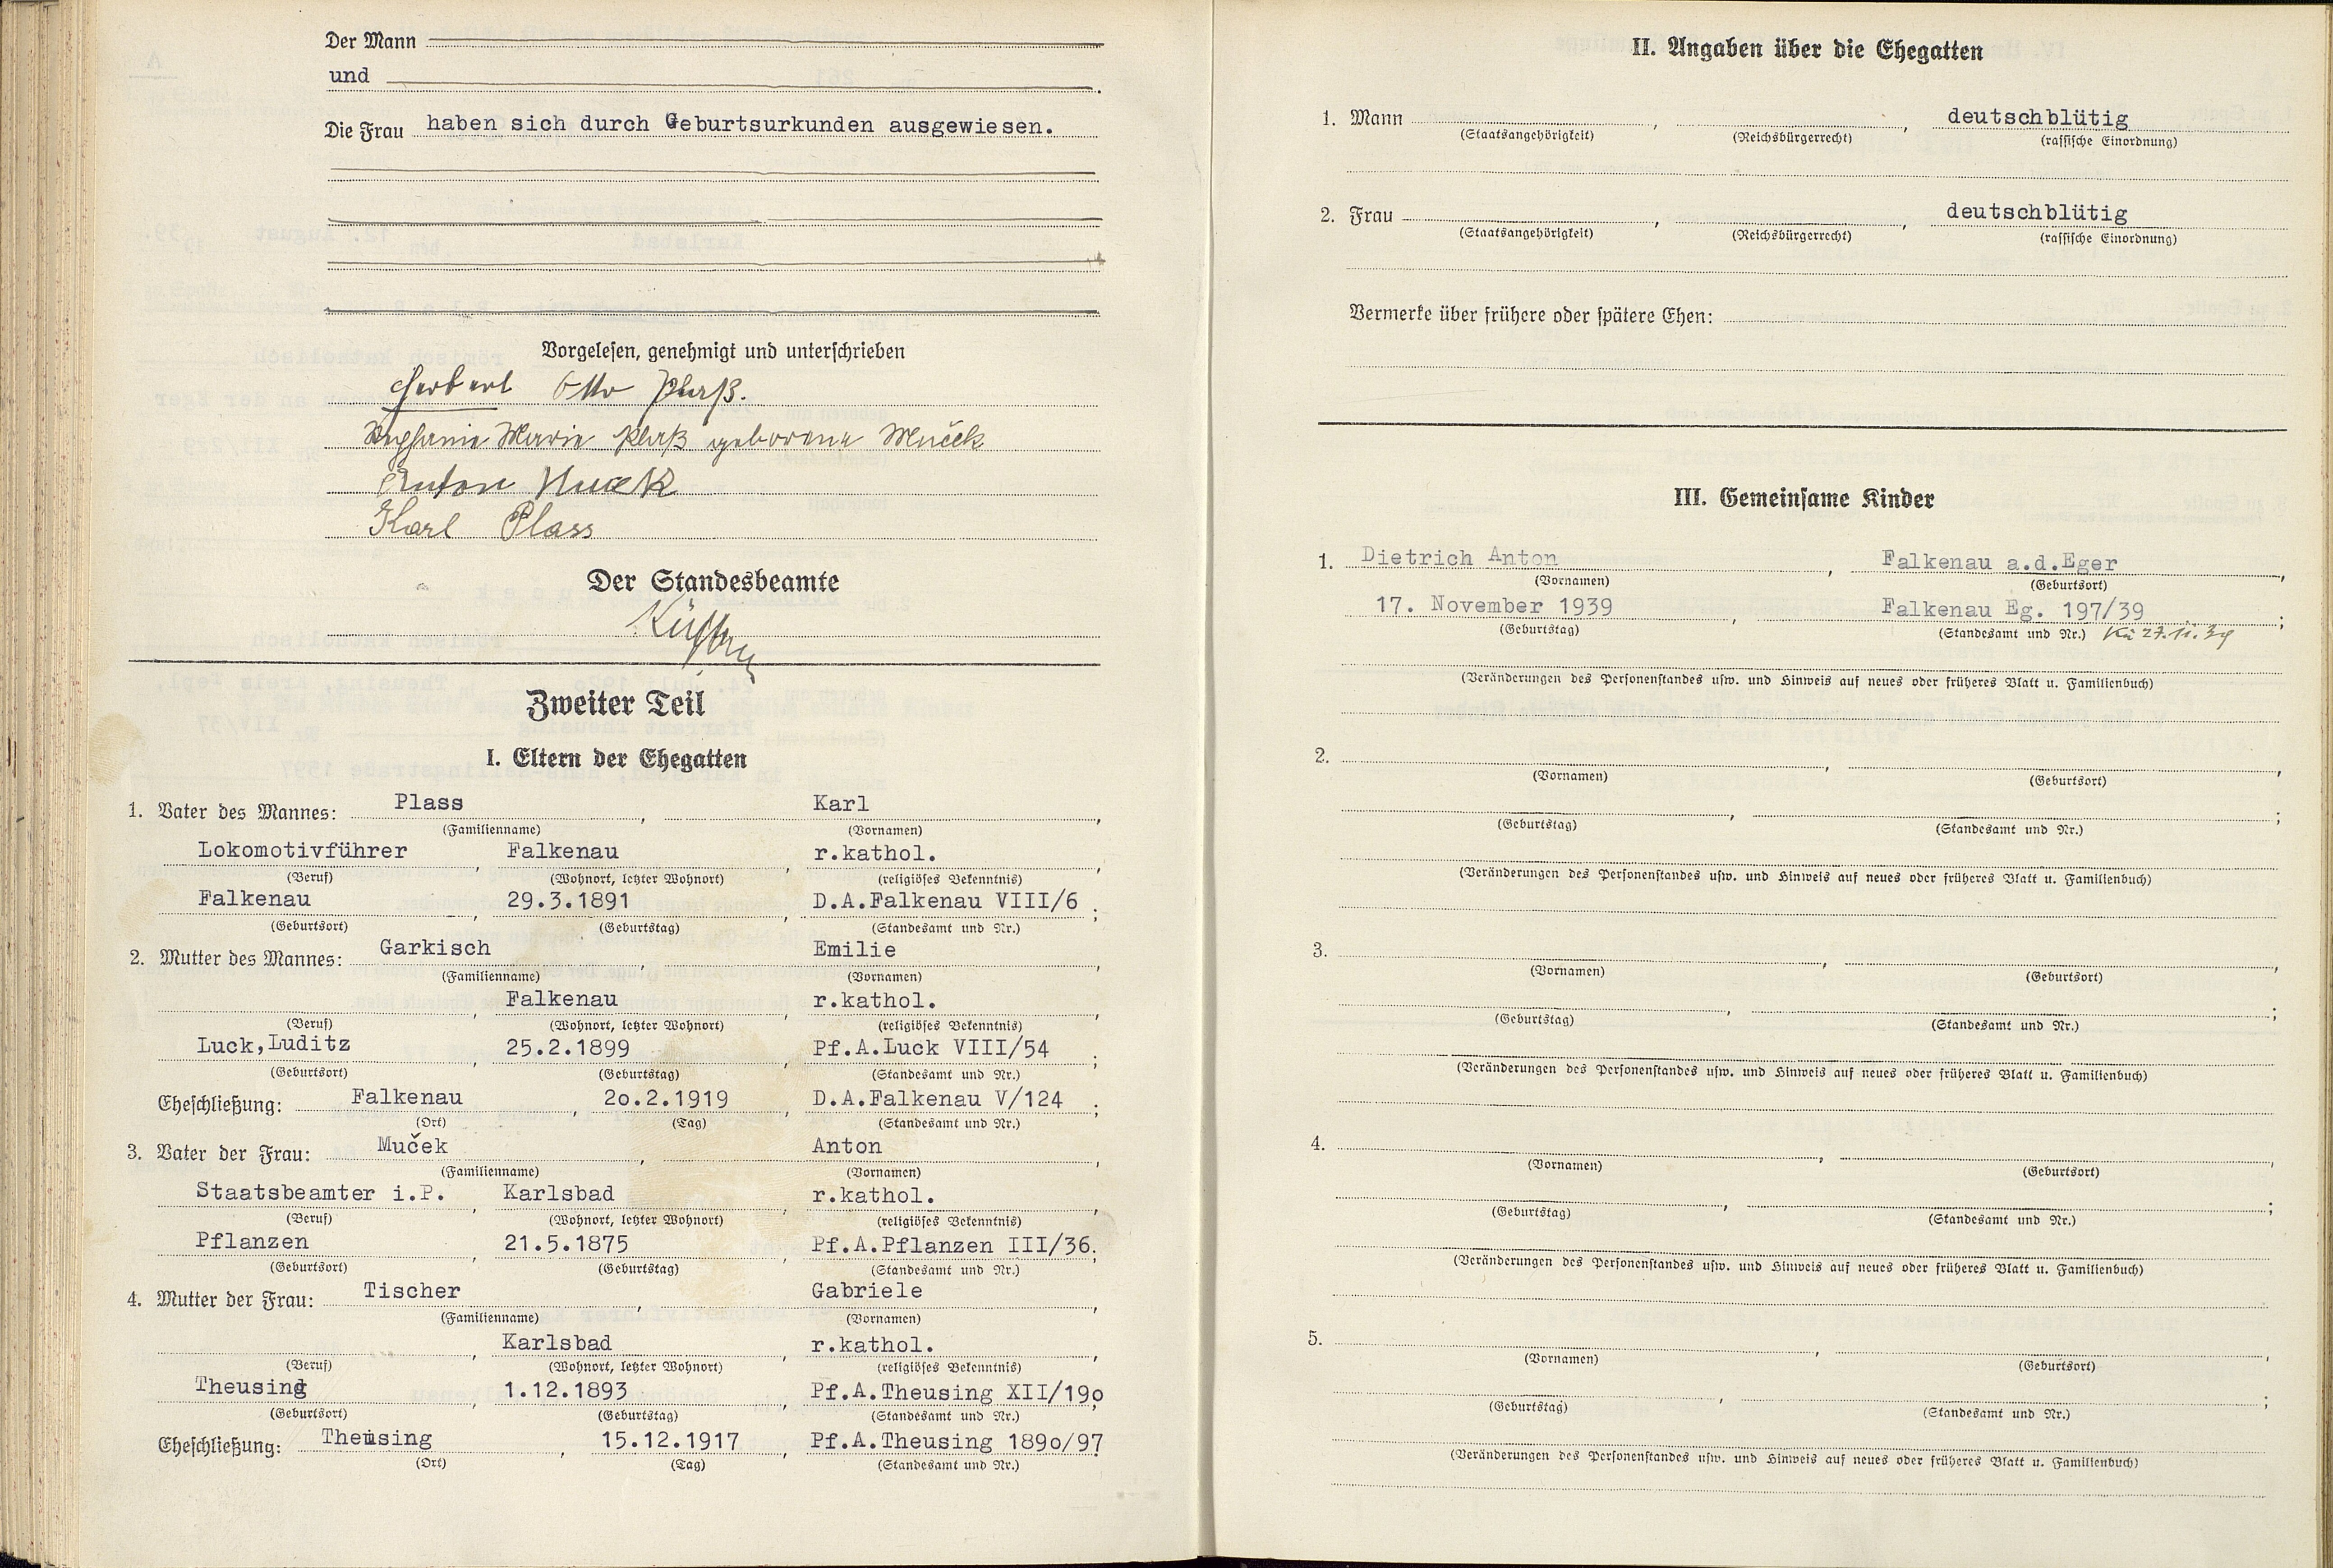 Der Mann
und
Die Frau haben sich durch Geburtsurkunden ausgewiesen.
Vorgelesen, genehmigt und unterschrieben
Herbert Otto Plaß.
Stephanie Marie Plaß geborene Muček
Anton Muček
Karl Plass
Der Standesbeamte
Zweiter Teil
I. Eltern der Ehegatten
1. Vater des Mannes: Plass, Karl,
(Familienname) (Vornamen)
Lokomotivführer, Falkenau, r.kathol.,
(Beruf) (Wohnort, letzter Wohnort) (religiöses Bekenntnis)
Falkenau, 29.3.1891, D.A.Falkenau VIII/6;
(Geburtsort) (Geburtstag) (Standesamt und Nr.)
2. Mutter des Mannes: Garkisch, Emilie,
(Familienname) (Vornamen)
, Falkenau, r.kathol.,
(Beruf) (Wohnort, letzter Wohnort) (religiöses Bekenntnis)
Luck,Luditz, 25.2.1899, Pf.A.Luck VIII/54;
(Geburtsort) (Geburtstag) (Standesamt und Nr.)
Eheschließung: Falkenau, 2o.2.1919, D.A.Falkenau V/124;
(Ort) (Tag) (Standesamt und Nr.)
3. Vater der Frau: Muček, Anton,
(Familienname) (Vornamen)
Staatsbeamter i.P., Karlsbad, r.kathol.,
(Beruf) (Wohnort, letzter Wohnort) (religiöses Bekenntnis)
Pflanzen, 21.5.1875, Pf.A.Pflanzen III/36;
(Geburtsort) (Geburtstag) (Standesamt und Nr.)
4. Mutter der Frau: Tischer, Gabriele,
(Familienname) (Vornamen)
, Karlsbad, r.kathol.,
(Beruf) (Wohnort, letzter Wohnort) (religiöses Bekenntnis)
Theusing, 1.12.1893, Pf.A.Theusing XII/19o;
(Geburtsort) (Geburtstag) (Standesamt und Nr.)
Eheschließung: Theusing, 15.12.1917, Pf.A.Theusing 189o/97
(Ort) (Tag) (Standesamt und Nr.)
II. Angaben über die Ehegatten
1. Mann , , deutschblütig
(Staatsangehörigkeit) (Reichsbürgerrecht) (rassische Einordnung)
2. Frau , , deutschblütig
(Staatsangehörigkeit) (Reichsbürgerrecht) (rassische Einordnung)
Vermerke über frühere oder spätere Ehen:
III. Gemeinsame Kinder
1. Dietrich Anton, Falkenau a.d.Eger,
(Vornamen) (Geburtsort)
17. November 1939, Falkenau Eg. 197/39;
(Geburtstag) (Standesamt und Nr.) Kü 27.11.39
(Veränderungen des Personenstandes usw. und Hinweis auf neues oder früheres Blatt u. Familienbuch)
2. , ,
(Vornamen) (Geburtsort)
, ;
(Geburtstag) (Standesamt und Nr.)
(Veränderungen des Personenstandes usw. und Hinweis auf neues oder früheres Blatt u. Familienbuch)
3. , ,
(Vornamen) (Geburtsort)
, ;
(Geburtstag) (Standesamt und Nr.)
(Veränderungen des Personenstandes usw. und Hinweis auf neues oder früheres Blatt u. Familienbuch)
4. , ,
(Vornamen) (Geburtsort)
, ;
(Geburtstag) (Standesamt und Nr.)
(Veränderungen des Personenstandes usw. und Hinweis auf neues oder früheres Blatt u. Familienbuch)
5. , ,
(Vornamen) (Geburtsort)
, ;
(Geburtstag) (Standesamt und Nr.)
(Veränderungen des Personenstandes usw. und Hinweis auf neues oder früheres Blatt u. Familienbuch)